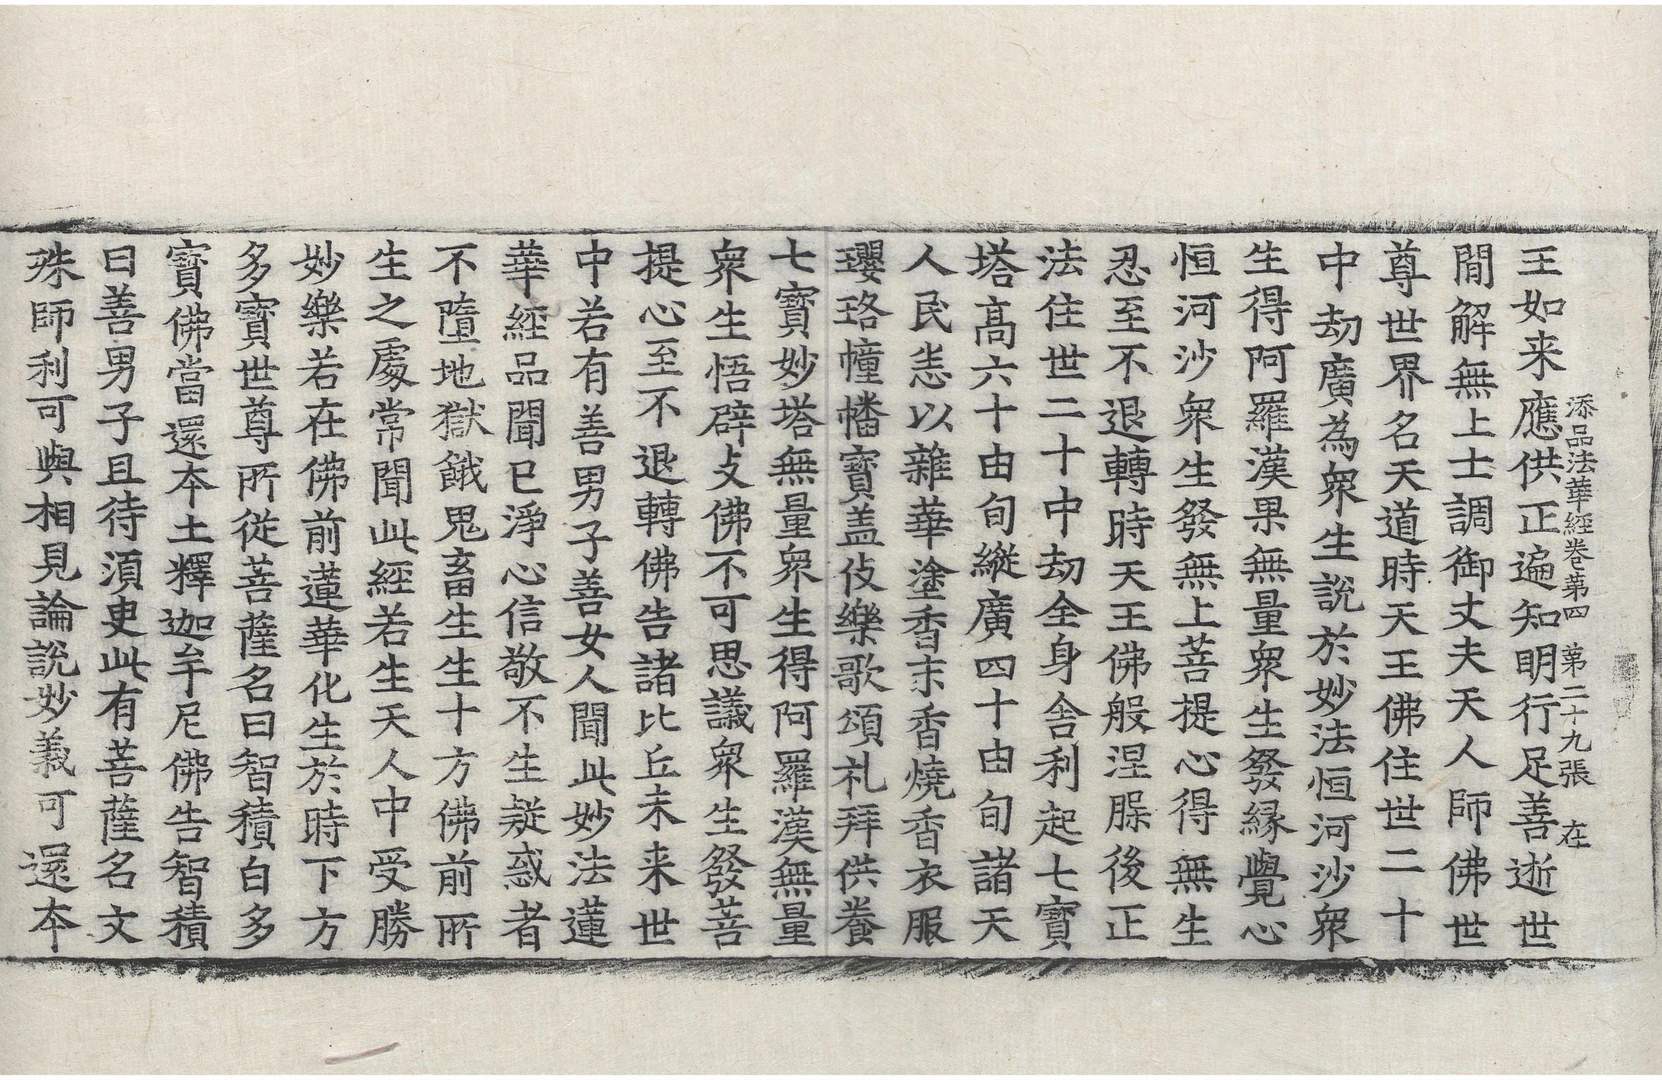 添品法華經卷苐四　苐二十九張　在
王如来應供正遍知明行足善逝世
間解無上士調御丈夫天人師佛世
尊世界名天道時天王佛住世二十
中劫廣為衆生說於妙法恒河沙衆
生得阿羅漢果無量衆生發縁覺心
恒河沙衆生發無上菩提心得無生
忍至不退轉時天王佛般涅槃後正
法住世二十中劫全身舍利起七寶
塔髙六十由旬縱廣四十由旬諸天
人民悉以雜華塗香末香燒香衣服
瓔珞幢幡寶盖伎樂歌頌礼拜供養
七寶妙塔無量衆生得阿羅漢無量
衆生悟辟支佛不可思議衆生發菩
提心至不退轉佛告諸比丘未来世
中若有善男子善女人聞此妙法蓮
華經品聞已淨心信敬不生疑惑者
不墮地獄餓鬼畜生生十方佛前所
生之處常聞此經若生天人中受勝
妙樂若在佛前蓮華化生於時下方
多寶世尊所從菩薩名曰智積白多
寶佛當還本土釋迦牟尼佛告智積
曰善男子且待須臾此有菩薩名文
殊師利可與相見論說妙義可還本